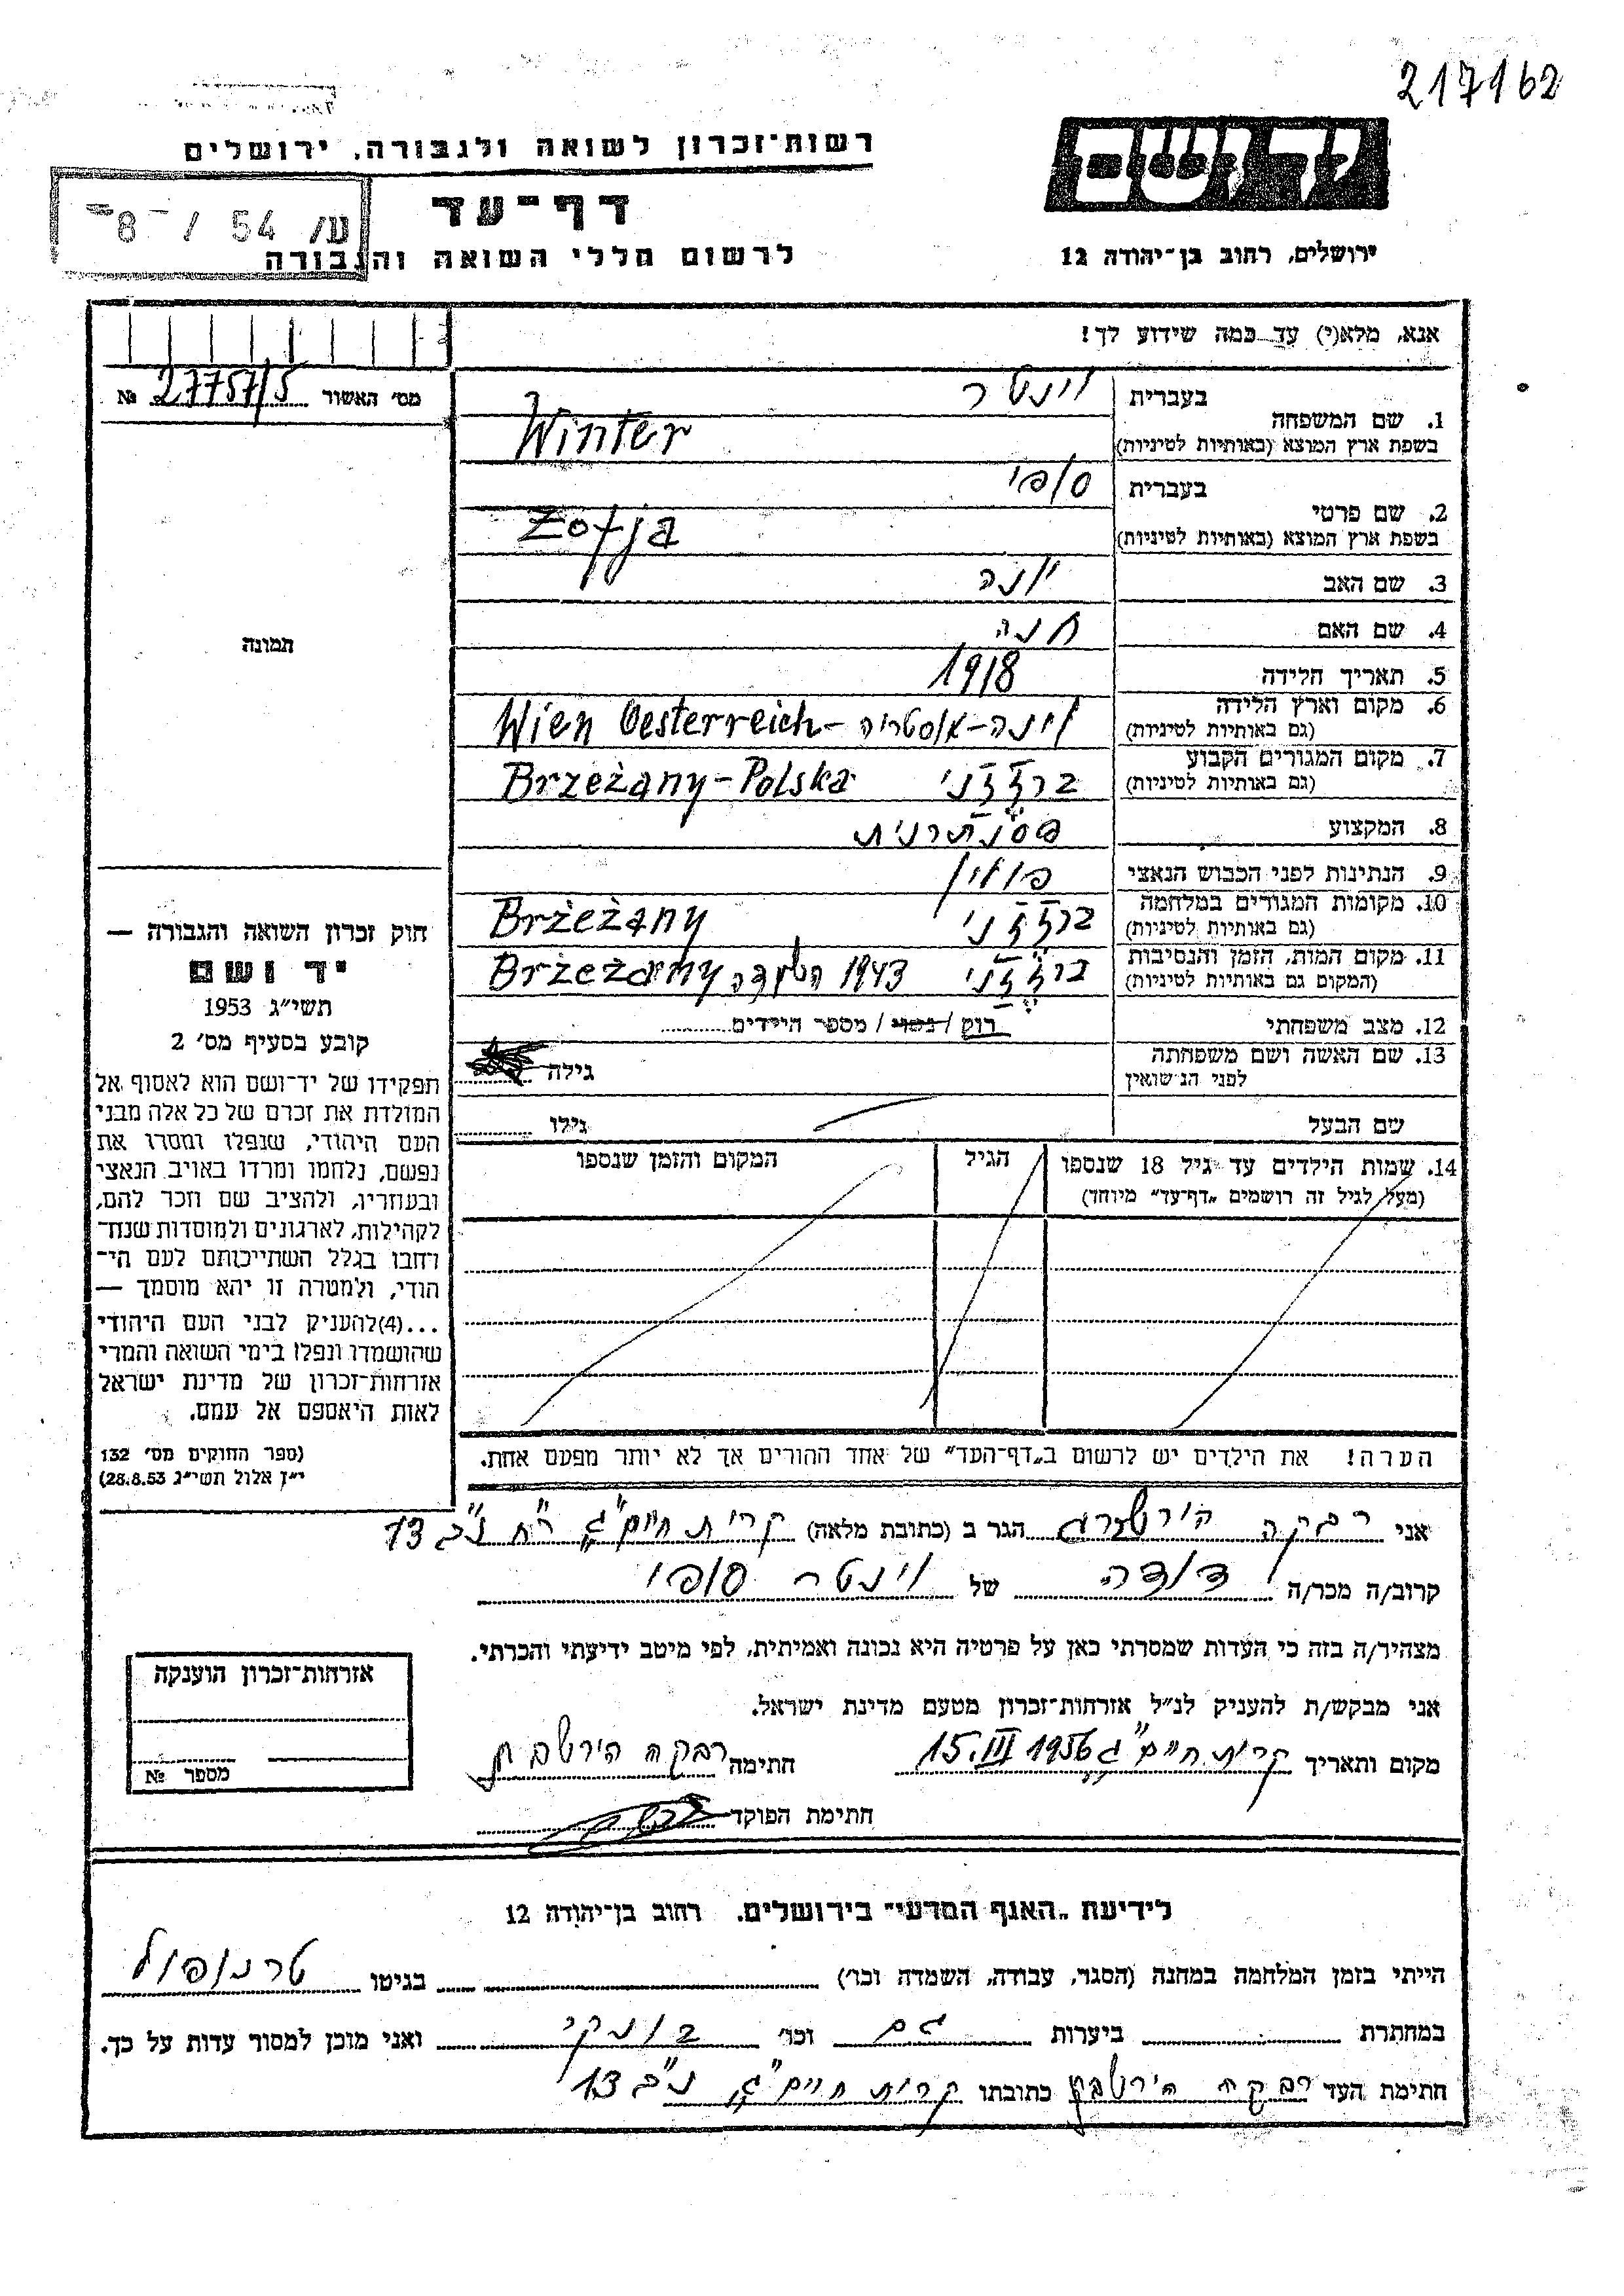 217162
רשות־זכרון לשואה ולגבורה, ירושלים
יד ושם
דף־עד
ע/ 54 / 8
לרשום חללי השואה והגבורה
ירושלים, רחוב בן־יהודה 12
אנא, מלא(י) עד כמה שידוע לך!
מס׳ האשור 27757/5 №
1. שם המשפחה
בעברית וינטר
בשפת ארץ המוצא (באותיות לטיניות) Winter
2. שם פרטי
בעברית סופי
בשפת ארץ המוצא (באותיות לטיניות) Zofja
3. שם האב יונה
4. שם האם חנה
תמונה
5. תאריך הלידה 1918
6. מקום וארץ הלידה
(גם באותיות לטיניות) וינה-אוסטריה - Wien Oesterreich
7. מקום המגורים הקבוע
(גם באותיות לטיניות) ברז'ז'ני Brzeżany-Polska
8. המקצוע פסנתרנית
9. הנתינות לפני הכבוש הנאצי פולין
10. מקומות המגורים במלחמה
(גם באותיות לטיניות) ברז'ז'ני Brżeżany
11. מקום המות, הזמן והנסיבות
(המקום גם באותיות לטיניות) ברז'ז'ני 1943 השמדה Brżeżany
12. מצב משפחתי רוק / נשוי / מספר הילדים
13. שם האשה ושם משפחתה
לפני הנישואין גילה
שם הבעל גילו
14. שמות הילדים עד גיל 18 שנספו הגיל המקום והזמן שנספו
(מעל לגיל זה רושמים „דף־עד״ מיוחד)
הערה! את הילדים יש לרשום ב„דף־העד״ של אחד ההורים אך לא יותר מפעם אחת.
חוק זכרון השואה והגבורה —
יד ושם
תשי״ג 1953
קובע בסעיף מס׳ 2
תפקידו של יד־ושם הוא לאסוף אל
המולדת את זכרם של כל אלה מבני
העם היהודי, שנפלו ומסרו את
נפשם, נלחמו ומרדו באויב הנאצי
ובעוזריו, ולהציב שם וזכר להם,
לקהילות, לארגונים ולמוסדות שנח־
רבו בגלל השתייכותם לעם הי־
הודי, ולמטרה זו יהא מוסמך —
...(4)להעניק לבני העם היהודי
שהושמדו ונפלו בימי השואה והמרי
אזרחות־זכרון של מדינת ישראל
לאות היאספם אל עמם.
(ספר החוקים מס׳ 132
י״ז אלול תשי״ג 28.8.53)
אני רבקה הגר ב (כתובת מלאה) קרית חיים ג' רח נ"ב 13
קרוב/ה מכר/ה דודה של וינטר סופי
מצהיר/ה בזה כי העדות שמסרתי כאן על פרטיה היא נכונה ואמיתית, לפי מיטב ידיעתי והכרתי.
אני מבקש/ת להעניק לנ״ל אזרחות־זכרון מטעם מדינת ישראל.
מקום ותאריך קרית חיים ג' 15.III 1956 חתימה רבקה
חתימת הפוקד
אזרחות־זכרון הוענקה
מספר №
לידיעת „האגף המדעי״ בירושלים. רחוב בן־יהודה 12
הייתי בזמן המלחמה במחנה (הסגר, עבודה, השמדה וכו׳) בגיטו טרנופול
במחתרת ביערות גם וכו׳ בונקר ואני מוכן למסור עדות על כך.
חתימת העד רבקה כתובתו קרית חיים ג' נ"ב 13